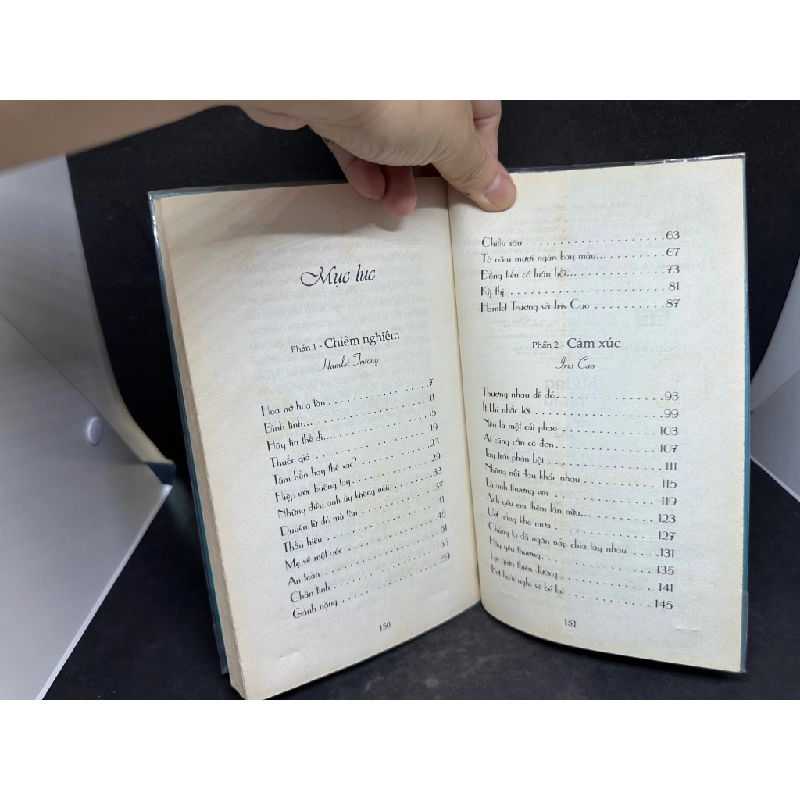 Mục lục
Phần 1 - Chiêm nghiệm
Hamlet Trương
Hoa nở hoa tàn 7
Bình tĩnh 11
Hãy tin thế đi 15
Thuốc giả 19
Tâm hồn hay thể xác? 23
Hiệp ước buông tay 29
Những điều anh ấy không nói 33
Duyên từ đó mà tàn 37
Thấu hiểu 41
Mẹ sẽ mệt nếu 45
An toàn 51
Chân tình 57
Gánh nặng 59
150
Chiều sâu 63
Từ năm mươi ngàn bay màu 67
Đồng tiền có luân hồi 73
Kỳ thị 81
Hamlet Trương và Iris Cao 87
Phần 2 - Cảm xúc
Iris Cao
Thương nhau để đó 93
Ít khi nhắc lời 99
Nếu là một cái phao 103
Ai cũng cần cô đơn 107
Tay trái phản bội 111
Những nỗi đau khác nhau 115
Là anh thương em 119
Anh yêu em thêm lần nữa 123
Ướt sống theo mưa 127
Chúng ta đã ngăn nắp chia tay nhau 131
Hãy yêu thương 135
Lạc giữa thiên đường 141
Biết luôn nghĩ sẽ bỏ lại 145
151